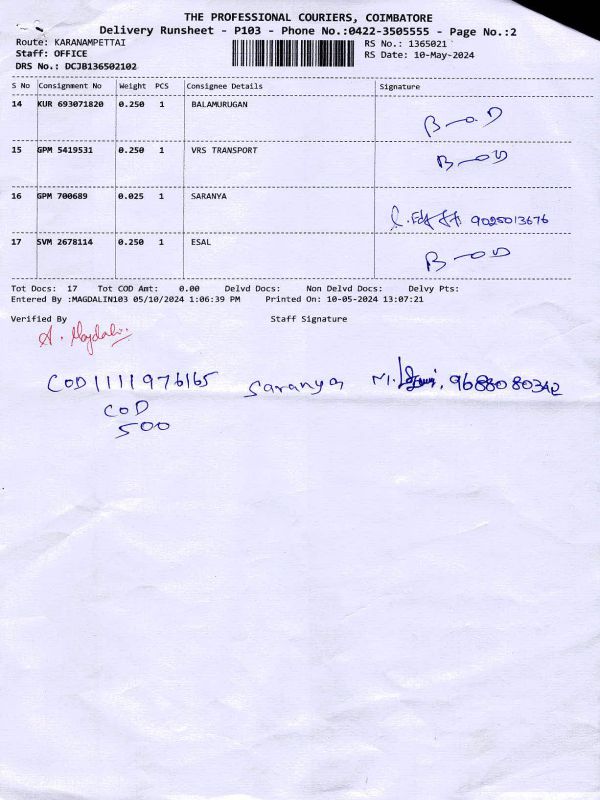 THE PROFESSIONAL COURIERS, COIMBATORE
Delivery Runsheet - P103 - Phone No.:0422-3505555 - Page No.:2
Route: KARANAMPETTAI RS No.: 1365021
Staff: OFFICE RS Date: 10-May-2024
DRS No.: DCJB136502102
S No Consignment No Weight PCS Consignee Details Signature
14 KUR 693071820 0.250 1 BALAMURUGAN B-O.D
15 GPM 5419531 0.250 1 VRS TRANSPORT B-OD
16 GPM 700689 0.025 1 SARANYA 9025013676
17 SVM 2678114 0.250 1 ESAL B-OD
Tot Docs: 17 Tot COD Amt: 0.00 Delvd Docs: Non Delvd Docs: Delvy Pts:
Entered By :MAGDALIN103 05/10/2024 1:06:39 PM Printed On: 10-05-2024 13:07:21
Verified By Staff Signature
A. Magdalin
COD1111976165 Saranya M. 9688080342
COD
500